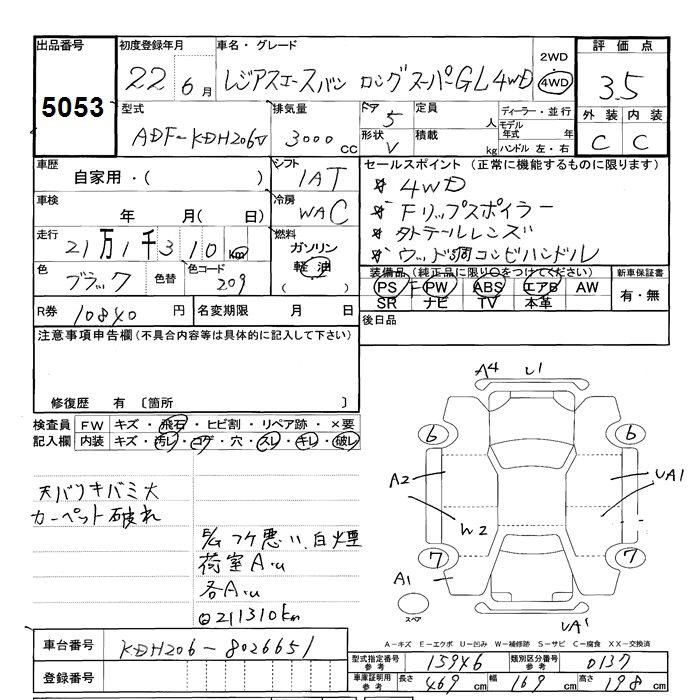 出品番号
5053
初度登録年月
22 6月
車名・グレード
レジアスエースバン ロングスーパーGL4WD
2WD
4WD
評価点
3.5
外装 内装
C C
型式
ADF-KDH206V
排気量
3000cc
ドア
5
形状
V
定員
人
積載
kg
ディーラー・並行
モデル年式 年
ハンドル 左・右
車歴
自家用・( )
シフト
IAT
車検
年 月(日)
冷房
WAC
走行
21万1千310km
燃料
ガソリン
軽油
( )
色
ブラック
色替
色コード
209
R券 10840円
名変期限 月 日
セールスポイント(正常に機能するものに限ります)
4WD
Fリップスポイラー
外テールレンズ
ウッド調コンビハンドル
装備品(純正品に限り○をつけてください)
PS PW ABS エアB AW
SR ナビ TV 本革
新車保証書
有・無
後日品
注意事項申告欄(不具合内容等は具体的に記入して下さい)
修復歴 有 〔箇所 〕
検査員記入欄
FW キズ・飛石・ヒビ割・リペア跡・×要
内装 キズ・汚レ・コゲ・穴・スレ・キレ・破レ
天バリキバミ大
カーペット破れ
E/G フケ悪い、白煙
荷室A・U
各A・U
◎211310km
A4 U1
6 6
A2 UA1
W2
7 7
A1
スペア
UA1
A-キズ E-エクボ U-凹み W-補修跡 S-サビ C-腐食 XX-交換済
車台番号 KDH206-8026651
登録番号
型式指定番号 参考 15946
類別区分番号 参考 0137
車庫証明用 参考 長さ 469cm 幅 169cm 高さ 198cm